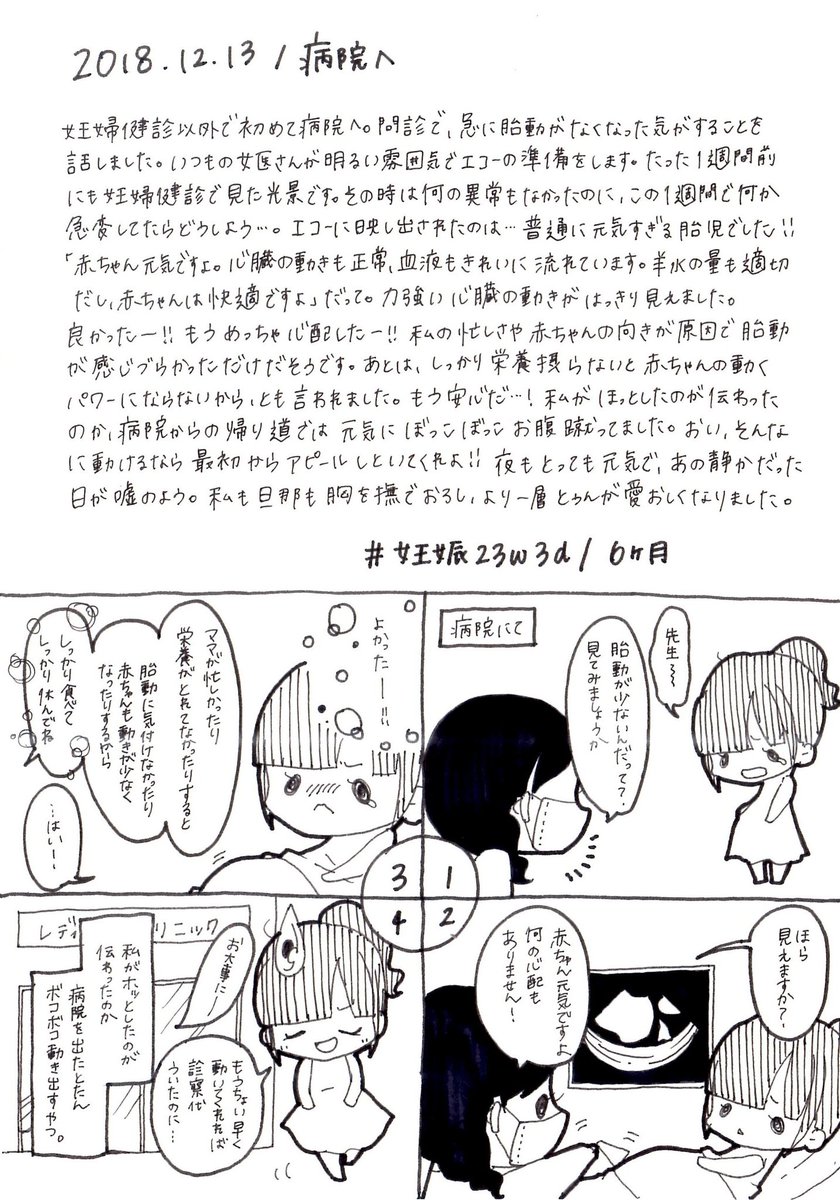 2018.12.13 / 病院へ
妊婦健診以外で初めて病院へ。問診で、急に胎動がなくなった気がすることを
話しました。いつもの女医さんが明るい雰囲気でエコーの準備をします。たった1週間前
にも妊婦健診で見た光景です。その時は何の異常もなかったのに、この1週間で何か
急変してたらどうしよう…。エコーに映し出されたのは…普通に元気すぎる胎児でした!!
「赤ちゃん元気ですよ。心臓の動きも正常、血液もきれいに流れています。羊水の量も適切
だし、赤ちゃんは快適ですよ」だって。力強い心臓の動きがはっきり見えました。
良かったー!!もうめっちゃ心配したー!!私の忙しさや赤ちゃんの向きが原因で胎動
が感じづらかっただけだそうです。あとは、しっかり栄養摂らないと赤ちゃんの動く
パワーにならないから、とも言われました。もう安心だ…!私がほっとしたのが伝わった
のか、病院からの帰り道では元気にぼっこぼっこお腹蹴ってました。おい、そんな
に動けるなら最初からアピールしといてくれよ!!夜もとっても元気で、あの静かだった
日が嘘のよう。私も旦那も胸を撫でおろし、より一層とぅんが愛おしくなりました。
#妊娠23w3d / 6ヶ月
病院にて
先生〜
胎動が少ないんだって?
見てみましょうか
1
ほら
見えますか?
赤ちゃん元気ですよ
何の心配も
ありません!
2
よかったー!!
ママが忙しかったり
栄養がとれてなかったりすると
胎動に気付けなかったり
赤ちゃんも動きが少なく
なったりするから
しっかり食べて
しっかり休んでね
…はいー
3
4
レディ リニック
お大事にー
私がホッとしたのが
伝わったのか
病院を出たとたん
ボコボコ動き出すやつ。
もうちょい早く
動いてくれれば
診察代
ういたのに…